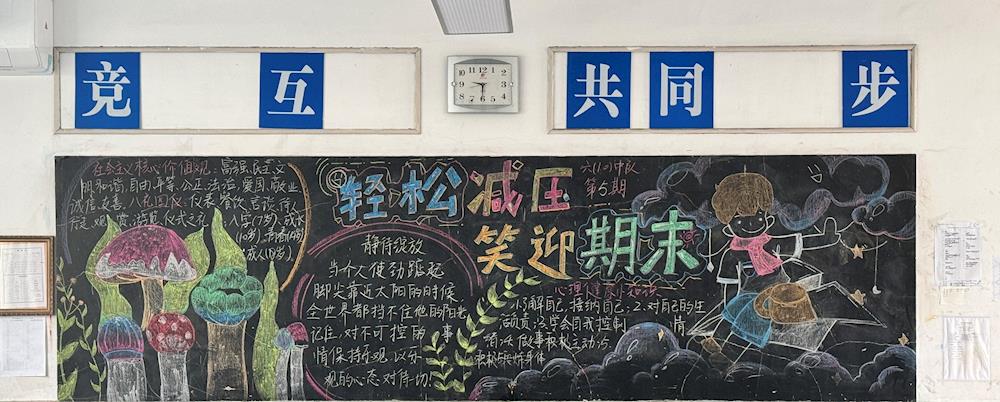 竞 互
共同 步
社会主义核心价值观：富强、民主、文
明、和谐、自由、平等、公正、法治、爱国、敬业、
诚信、友善。八礼四仪：仪表、餐饮、言谈、待
人字(7岁)、成长
(10岁)、青春(14岁)
成人(18岁)。
轻松减压
笑迎期末
六(10)中队
第六期
静待绽放
当个人使劲踮起
脚尖靠近太阳的时候
全世界都挡不住他的阳光
记住，对不可控的事
情保持乐观，以乐
观的心态对待一切！
心理健康小知识
1.了解自己，接纳自己；2.对自己的生
活负责；3.学会自我控制情
绪；4.做事积极主动；5.
积极锻炼身体